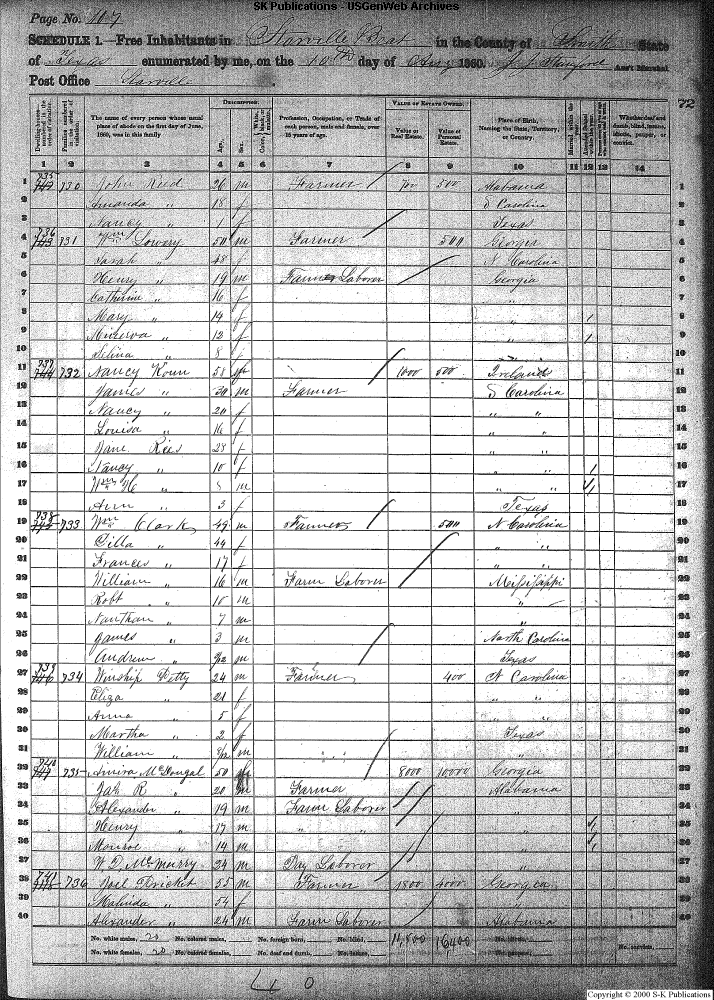 SK Publications - USGenWeb Archives
Page No. 107
SCHEDULE 1.—Free Inhabitants in Starrville Beat in the County of Smith State
of Texas enumerated by me, on the 10th day of Aug 1860. Ass't Marshal.
Post Office Starrville
72
Dwelling-houses numbered in the order of visitation. Families numbered in the order of visitation. The name of every person whose usual place of abode on the first day of June, 1860, was in this family. Description. Age. Sex. Color, White, black, or mulatto. Profession, Occupation, or Trade of each person, male and female, over 15 years of age. Value of Estate Owned. Value of Real Estate. Value of Personal Estate. Place of Birth, Naming the State, Territory, or Country. Married within the year. Attended School within the year. Whether deaf and dumb, blind, insane, idiotic, pauper, or convict.
1 2 3 4 5 6 7 8 9 10 11 12 13 14
1 735 730 John Reed 26 m Farmer 700 500 Alabama 1
2 Amanda " 18 f S Carolina 2
3 Nancy " 1 f Texas 3
4 736 731 Wm Lowery 50 m Farmer 500 Georgia 4
5 Sarah " 48 f N Carolina 5
6 Henry " 19 m Farm Laborer Georgia 6
7 Catherine " 16 f " 7
8 Mary " 14 f " 1 8
9 Minerva " 12 f " 1 9
10 Selina " 8 f " 10
11 737 732 Nancy Koun 58 f 1000 500 Ireland 11
12 James " 30 m Farmer S Carolina 12
13 Nancy " 20 f " " 13
14 Louisa " 16 f " " 14
15 Jane Rees 28 f " " 15
16 Nancy " 10 f " " 1 16
17 Wm H " m " " 1 17
18 Ann " 3 f Texas 18
19 738 733 Wm Clark 49 m Farmer 500 N Carolina 19
20 Cilla " 44 f " " 20
21 Frances " 17 f " " 21
22 William " 16 m Farm Laborer Missisippi 22
23 Robt " 10 m " 23
24 Nauthan " 7 m " 24
25 James " 3 m North Carolina 25
26 Andrew " m Texas 26
27 739 734 Winship Petty 24 m Farmer 400 N Carolina 27
28 Eliza " 21 f " " 28
29 Anna " 5 f " " 29
30 Martha " 2 f Texas 30
31 William " m " 31
32 740 735 McDougal 50 f 8000 10000 Georgia 32
33 " 20 m Farmer Alabama 33
34 Alexander " 19 m Farm Laborer " 34
35 Henry " 17 m " " " 1 35
36 Monroe " 14 m " 1 36
37 W. D. McMurry 24 m Day Laborer " 37
38 741 736 Joel Dricket 55 m Farmer 1800 4000 Georgia 38
39 Malinda " 54 f " 39
40 Alexander " 24 m Farm Laborer Alabama 40
No. white males, 20 No. colored males, No. foreign born, No. blind, 16400
No. white females, 20 No. colored females, No. deaf and dumb, No. insane, No. paupers, No. convicts,
40
Copyright © 2000 S-K Publications